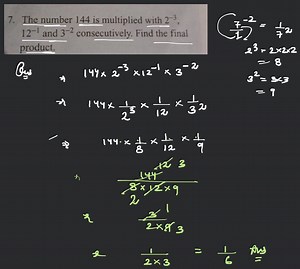 7. The number 144 is multiplied with 2⁻³,
12⁻¹ and 3⁻² consecutively. Find the final
product.
7⁻²/1 = 1/7²
2³ = 2×2×2
= 8
3² = 3×3
= 9
Ans
⇒ 144 × 2⁻³ × 12⁻¹ × 3⁻²
⇒ 144 × 1/2³ × 1/12 × 1/3²
⇒ 144 × 1/8 × 1/12 × 1/9
12 3
144
8 × 12 × 9
2
3 1
2 × 9 3
= 1/(2 × 3) = 1/6 Ans